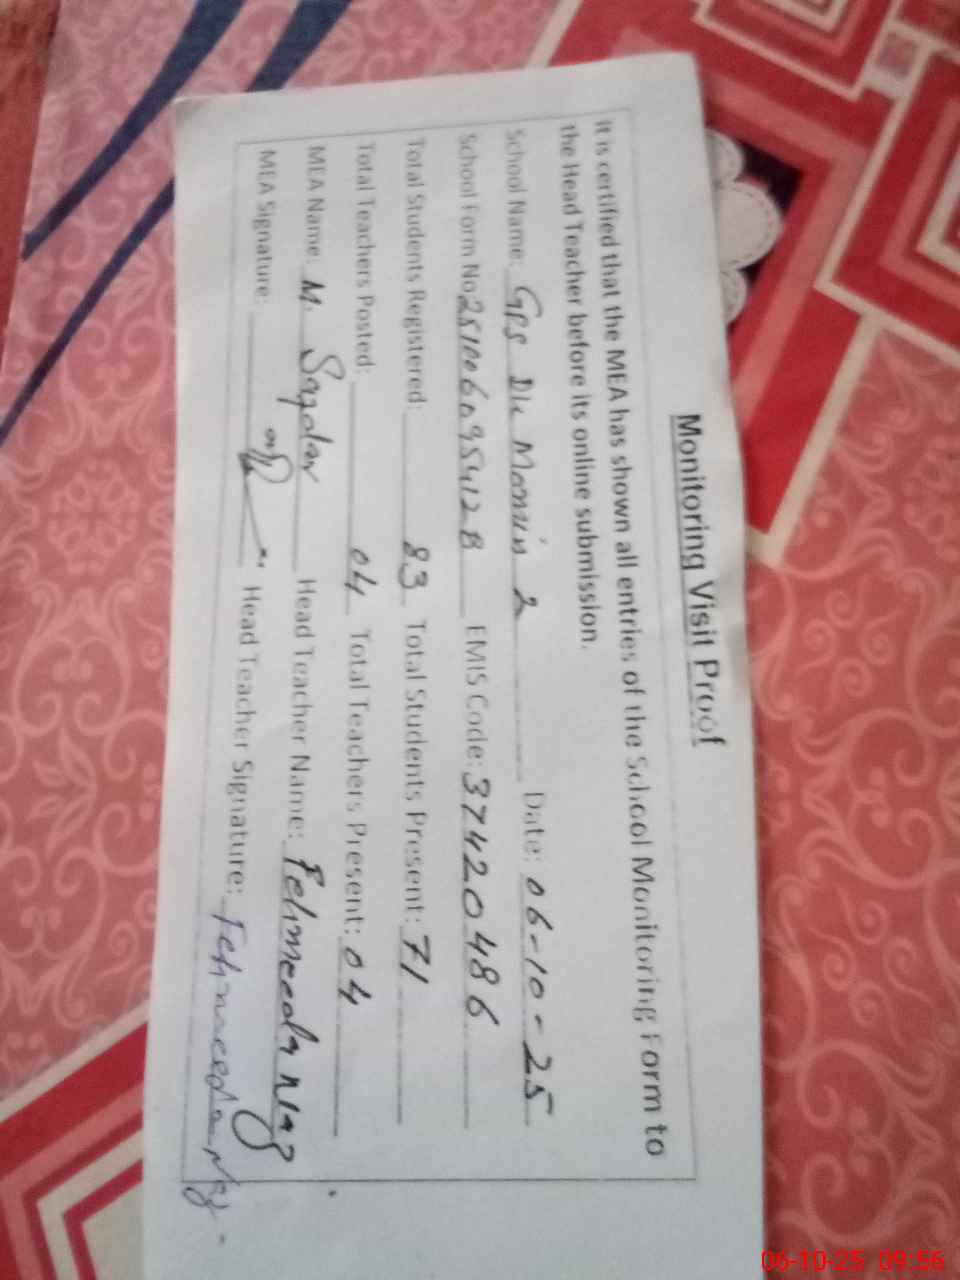 Monitoring Visit Proof
It is certified that the MEA has shown all entries of the School Monitoring Form to
the Head Teacher before its online submission.
School Name: GPS Dk Momin 2 Date: 06-10-25
School Form No: EMIS Code: 37420486
Total Students Registered: 83 Total Students Present: 71
Total Teachers Posted: 04 Total Teachers Present: 04
MEA Name: M. Head Teacher Name: Fehmeeda Niaz
MEA Signature: Head Teacher Signature: Fehmeeda
06-10-25 09:56